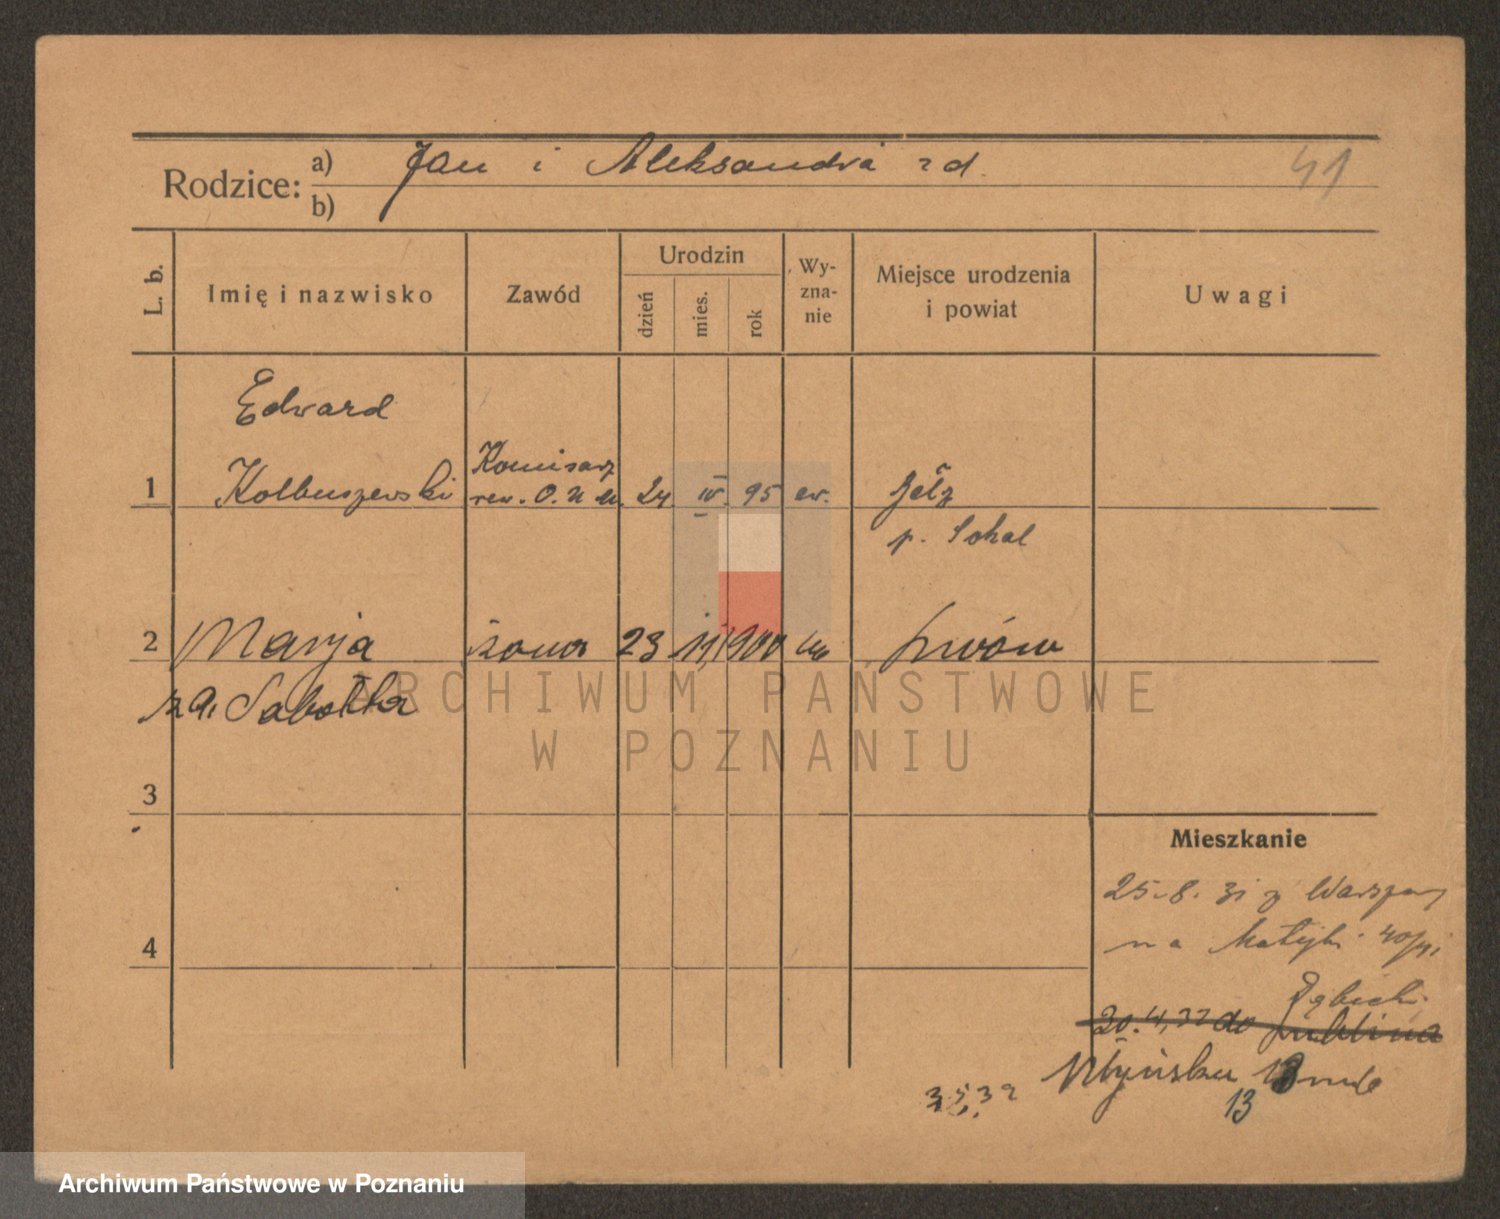 Rodzice:
a) Jan i Aleksandra zd.
b)
41
L. b.
Imię i nazwisko
Zawód
Urodzin
dzień
mies.
rok
Wy-
zna-
nie
Miejsce urodzenia
i powiat
Uwagi
Edward
1 Kolbuszewski
Komisarz
rew. O. U. 24 IV. 95 ew.
Bełz
p. Sokal
2 Marja żona 23 11, 900 Lwów
za. Sabotka
3
4
Mieszkanie
25.8.31 z Warszawy
na Matejki 40/41
Dębicki
30.4.32 do Lublina
Młyńska 13
13
3.5.32
ARCHIWUM PAŃSTWOWE
W POZNANIU
Archiwum Państwowe w Poznaniu